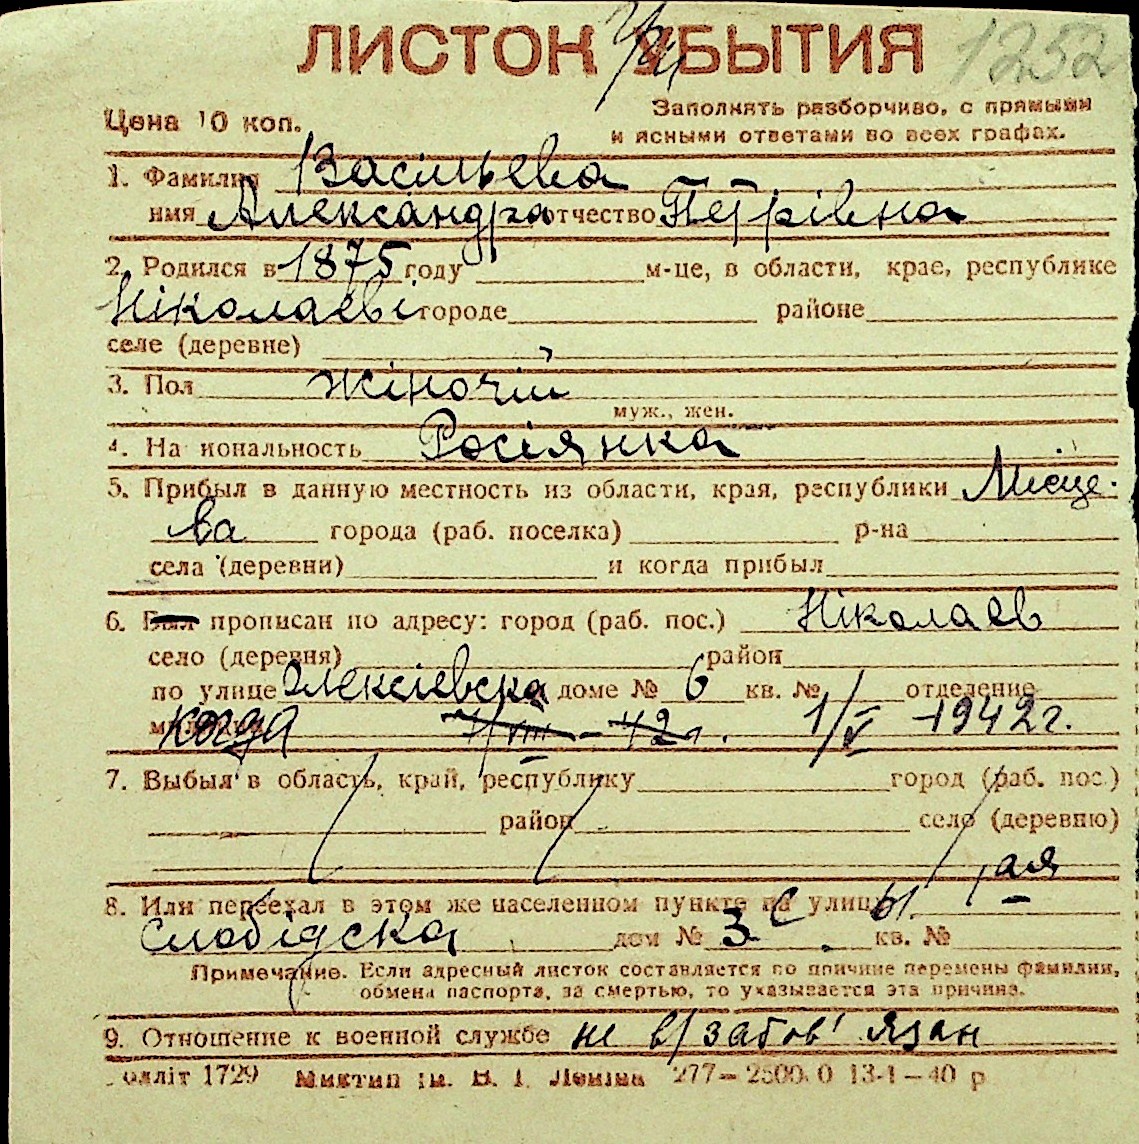 ЛИСТОК УБЫТИЯ 1252
Цена 10 коп.
Заполнять разборчиво, с прямыми
и ясными ответами во всех графах.
1. Фамилия Васільева
имя Александра отчество Петрівна
2. Родился в 1875 году м-це, в области, крае, республике
Ніколаеві городе районе
селе (деревне)
3. Пол жіночій
муж., жен.
4. На иональность Росіянка
5. Прибыл в данную местность из области, края, республики Місце-
ва города (раб. поселка) р-на
села (деревни) и когда прибыл
6. Был прописан по адресу: город (раб. пос.) Ніколаев
село (деревня) район
по улице Олексіевска доме № 6 кв. № отделение
когда 1/VIII - 42 г. 1/V 1942 г.
7. Выбыл в область, край, республику город (раб. пос.)
район село (деревню)
8. Или переехал в этом же населенном пункте на улицу 1 ая
Слобідска дом № 3 кв. №
Примечание. Если адресный листок составляется по причине перемены фамилии,
обмена паспорта, за смертью, то указывается эта причина.
9. Отношение к военной службе не в/забов'язан
олліт 1729 Миктип ім. В. І. Леніна 277—2500.0 13-1—40 р